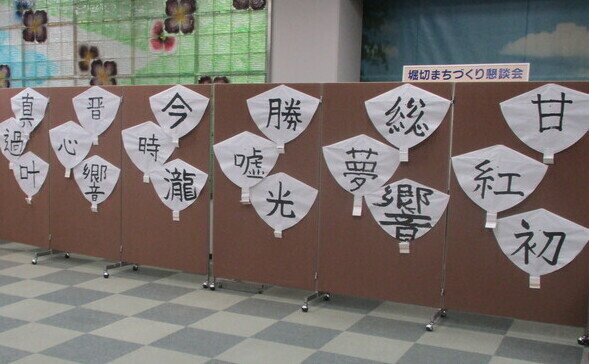 堀切まちづくり懇談会
真
過
叶
晋
心
響
今
時
瀧
勝
嘘
光
総
夢
響
甘
紅
初